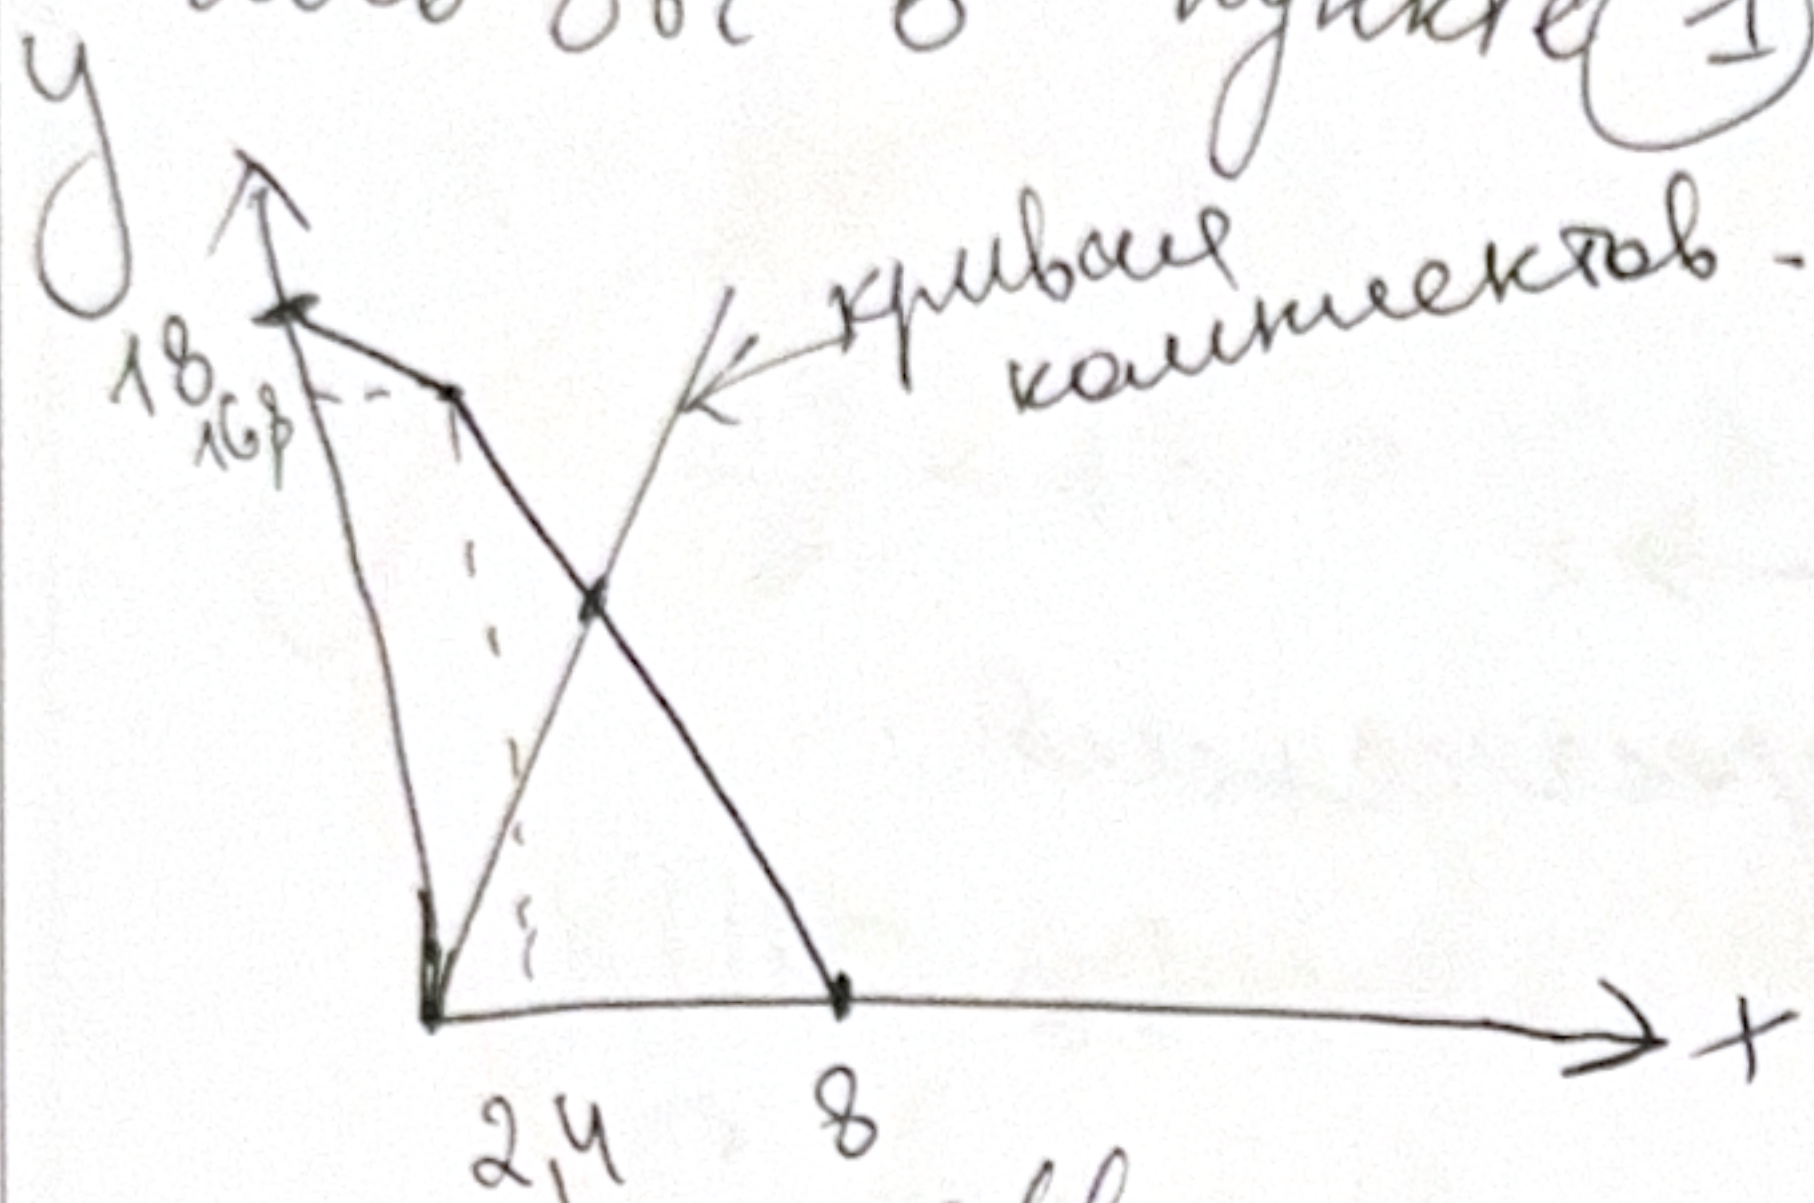 пункте 1
y
кривая
комплектов -
18
16,8
2,4
8
x